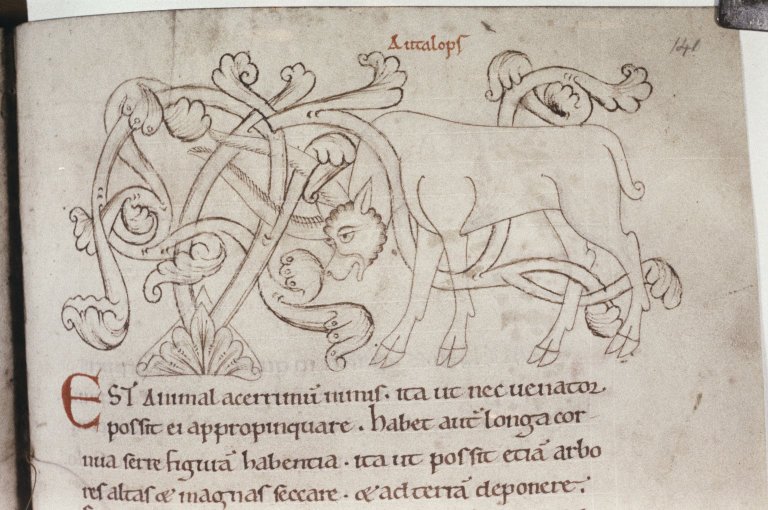 Autalops
140
EST Animal acerrimū nimis. ita ut nec uenator
possit ei appropinquare. habet aut̄ longa cor-
nua serre figurā habentia. ita ut possit etiā arbo
res altas & magnas seccare. & ad terrā deponere.